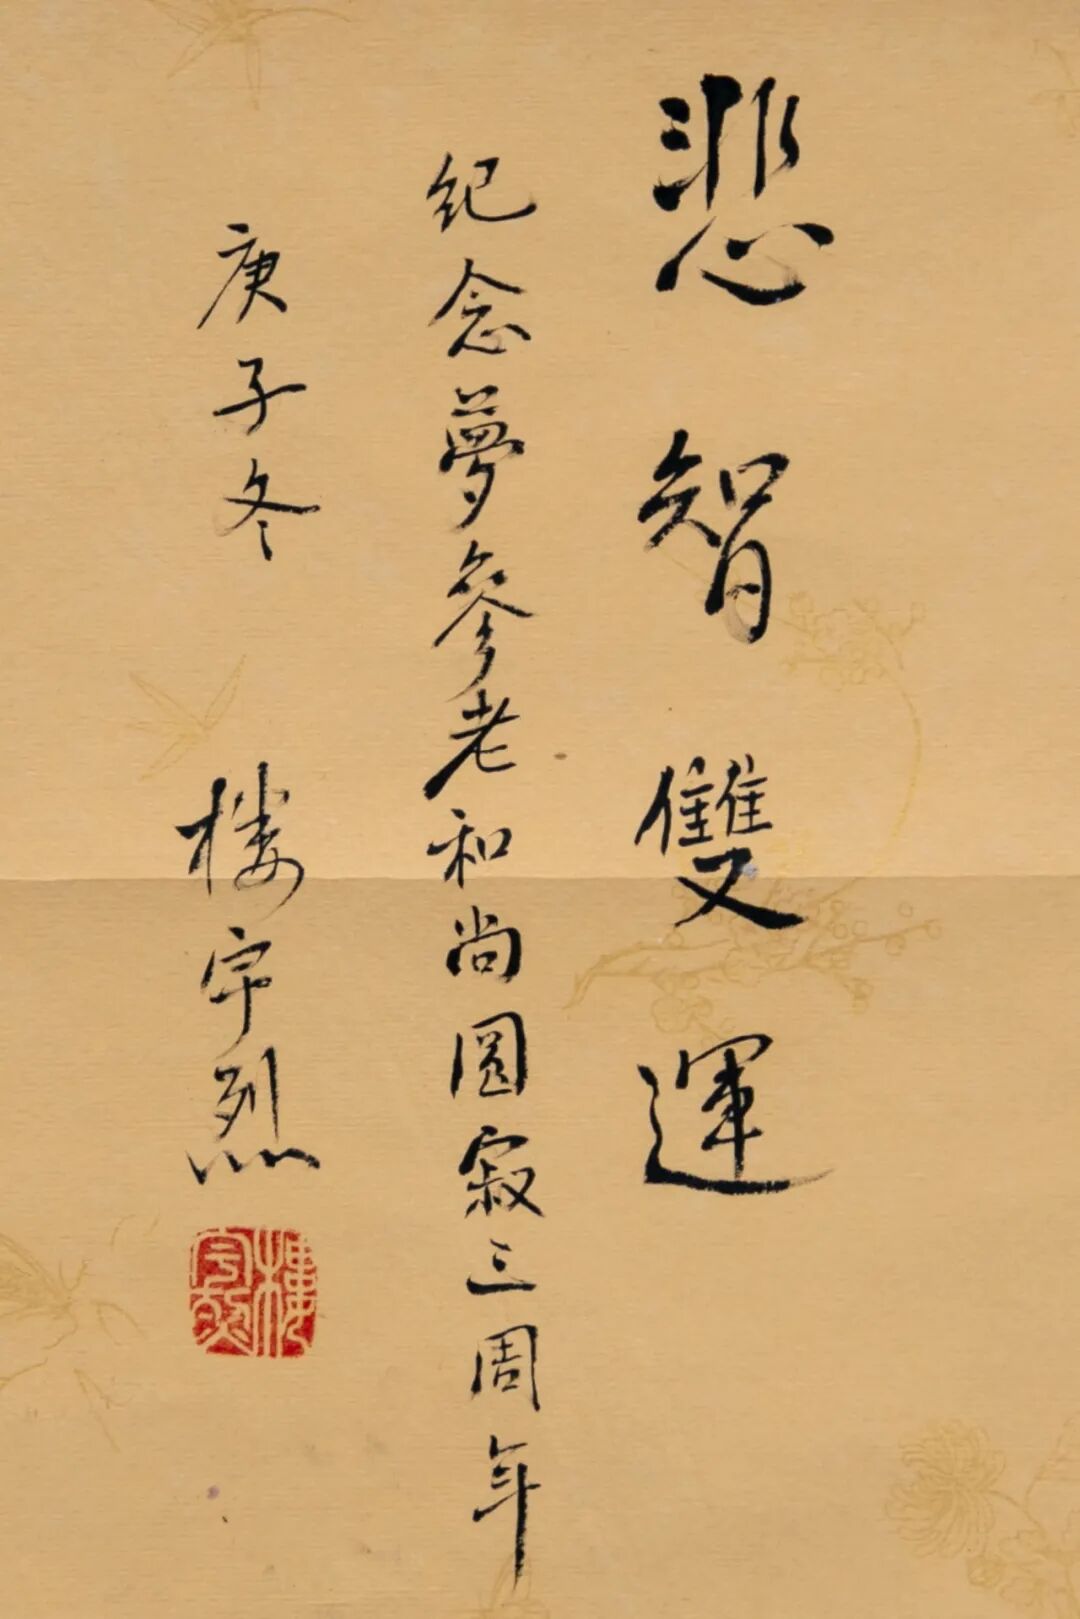 悲智雙運
纪念夢參老和尚圆寂三周年
庚子冬 楼宇烈
樓宇烈